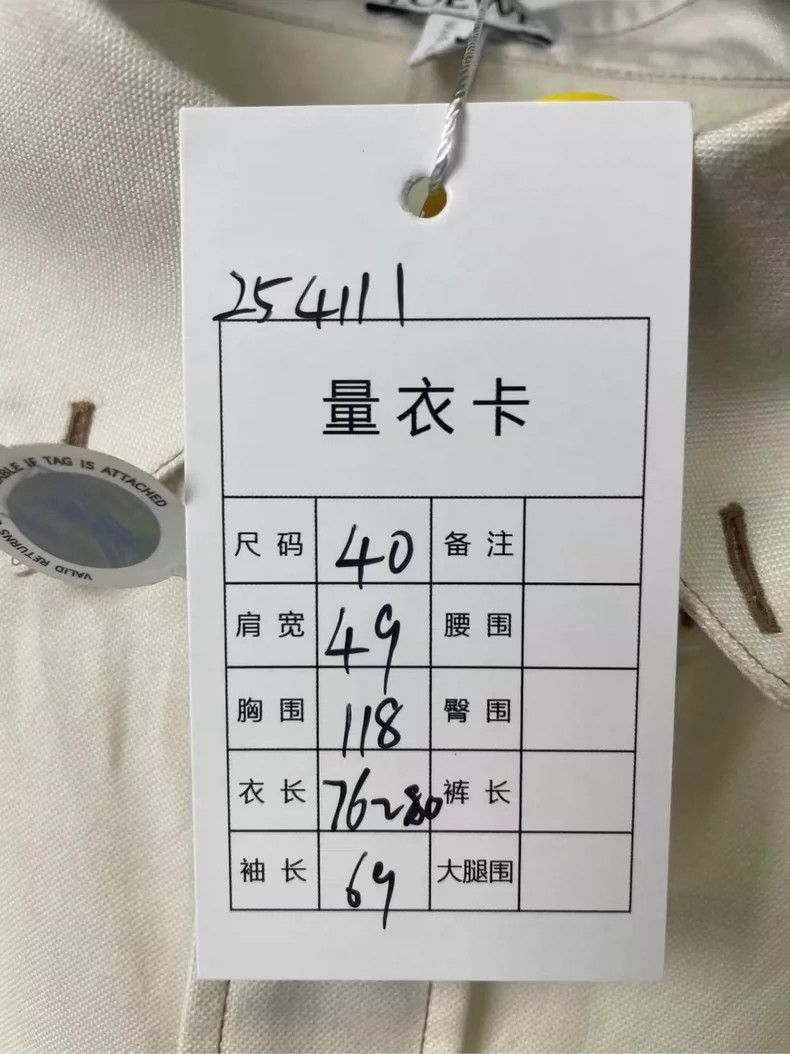 254111
量衣卡
尺码 40 备注
肩宽 49 腰围
胸围 118 臀围
衣长 76~80 裤长
袖长 69 大腿围
IF TAG IS ATTACHED
VALID RETURNS